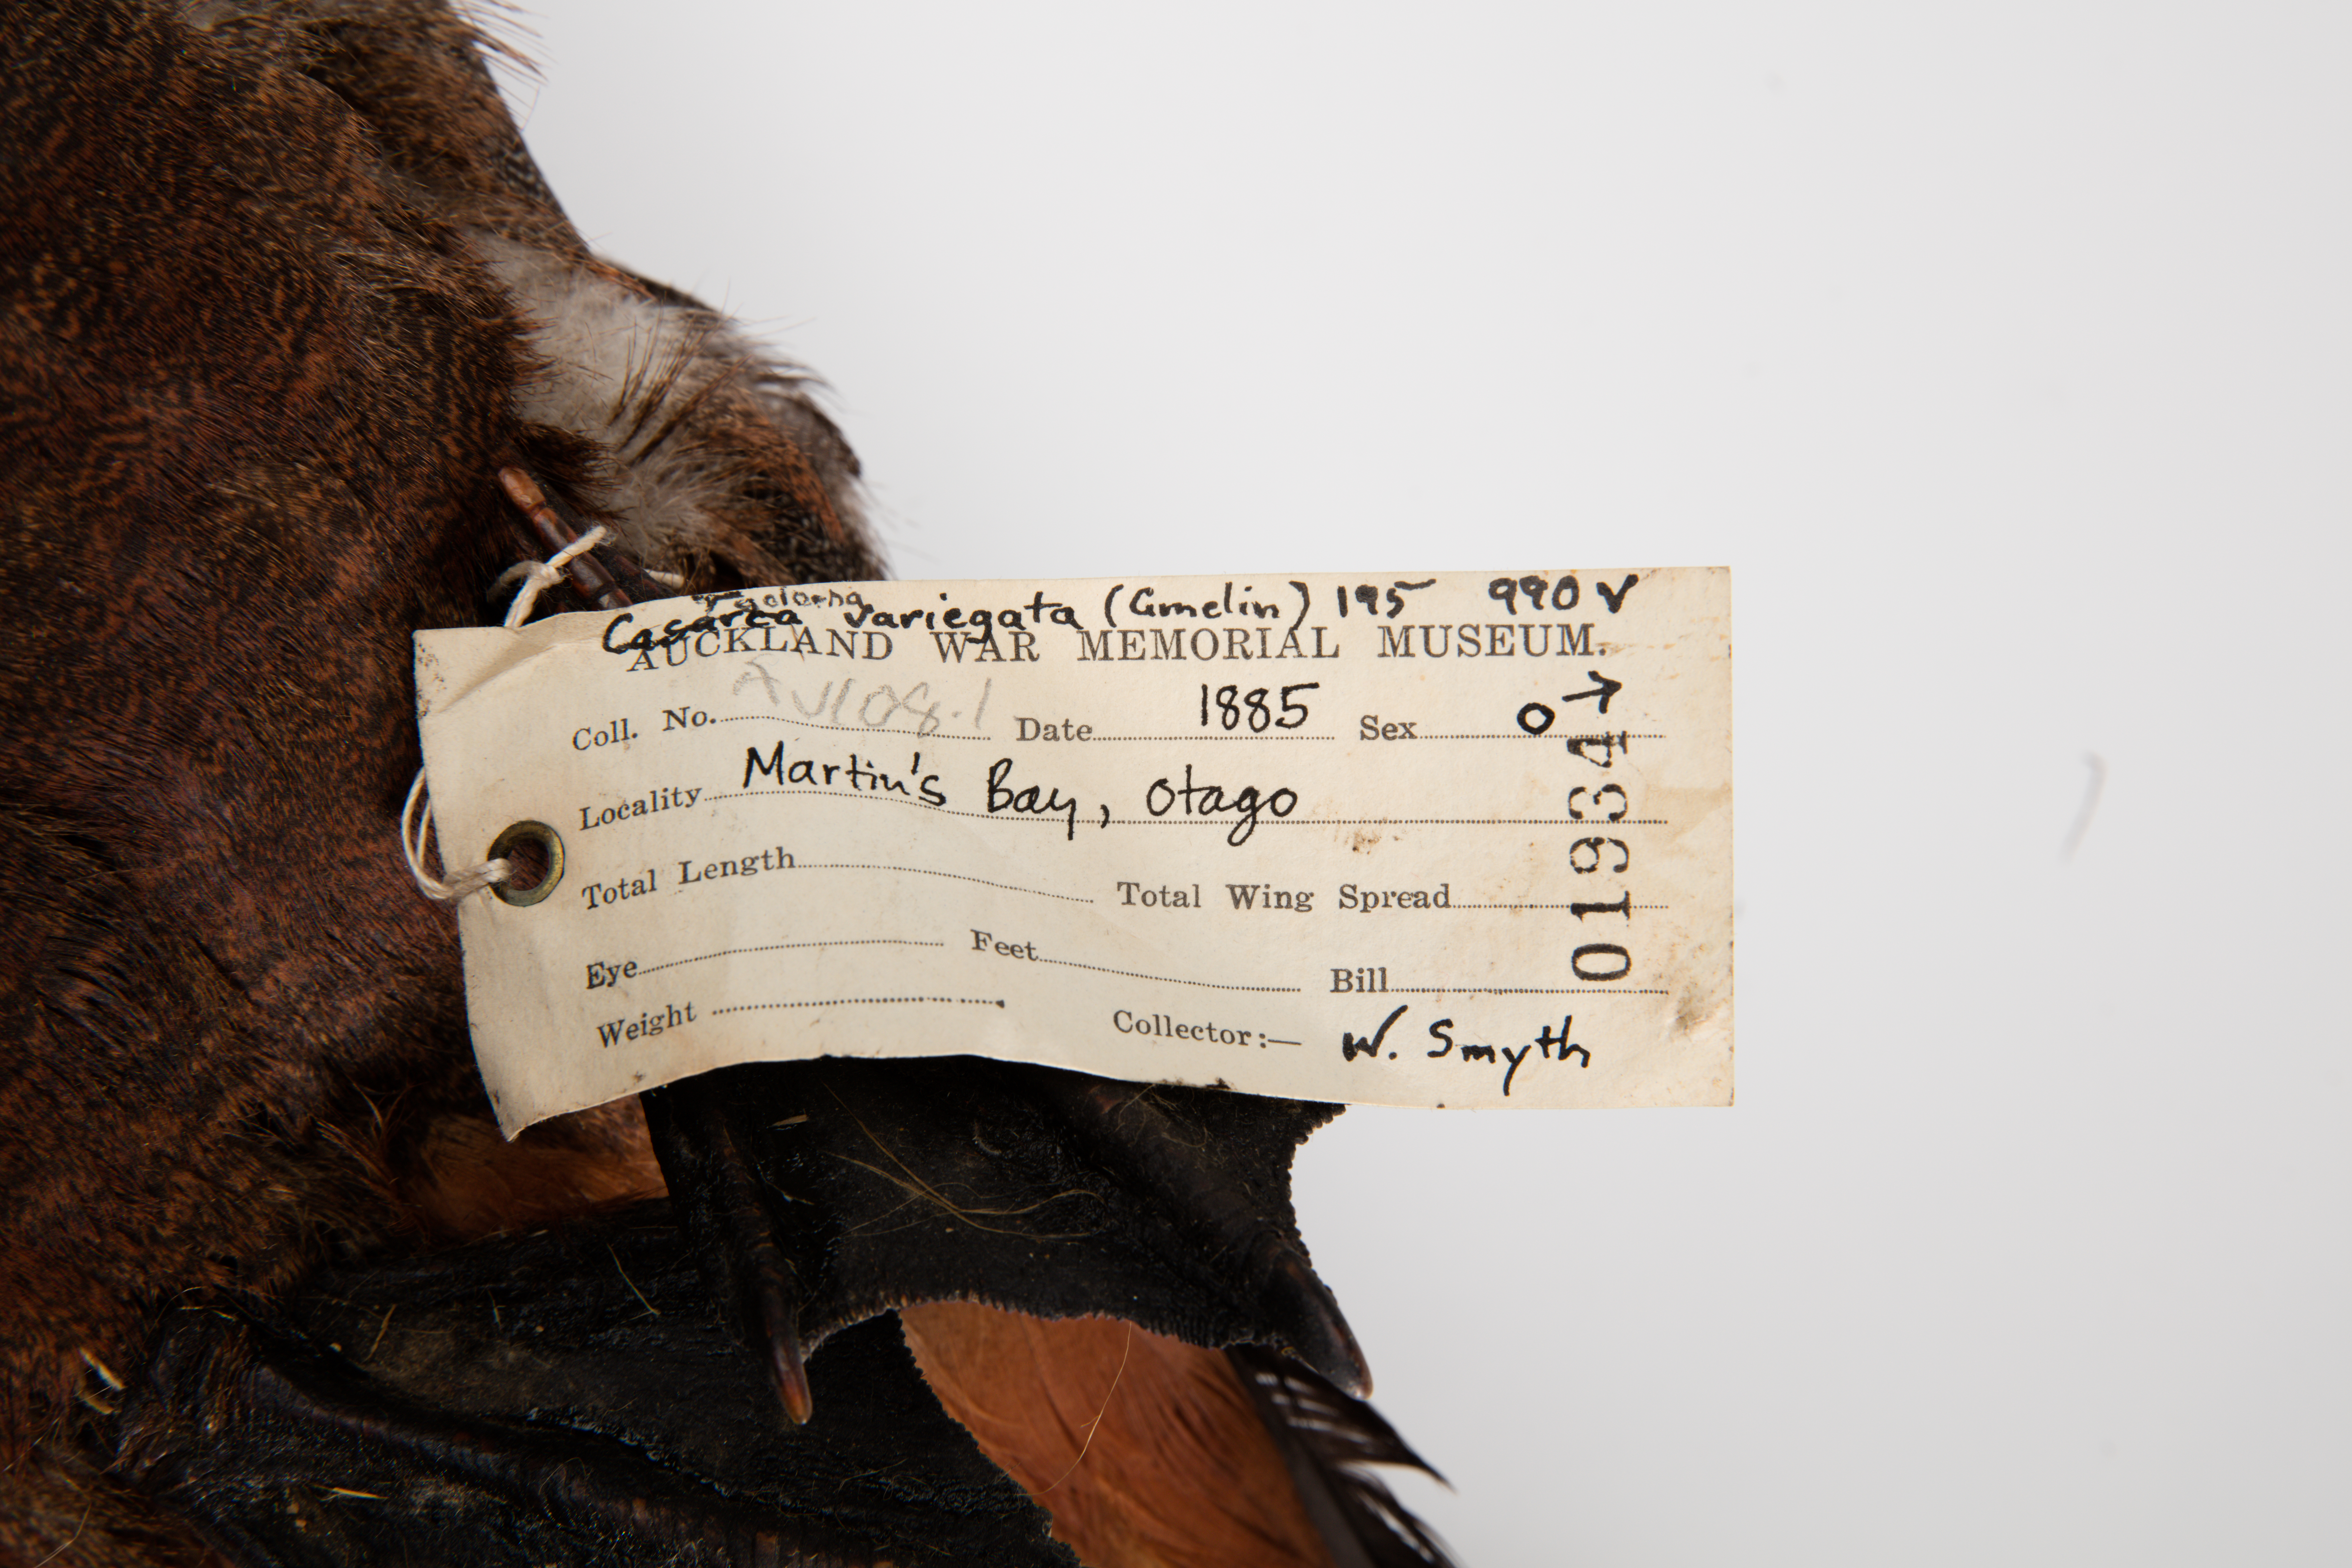 Casarca variegata (Gmelin) 195 990 V
AUCKLAND WAR MEMORIAL MUSEUM.
Coll. No. AV108.1 Date 1885 Sex ♂
Locality Martin's Bay, Otago
Total Length Total Wing Spread
Eye Feet Bill
Weight Collector:— W. Smyth
019347